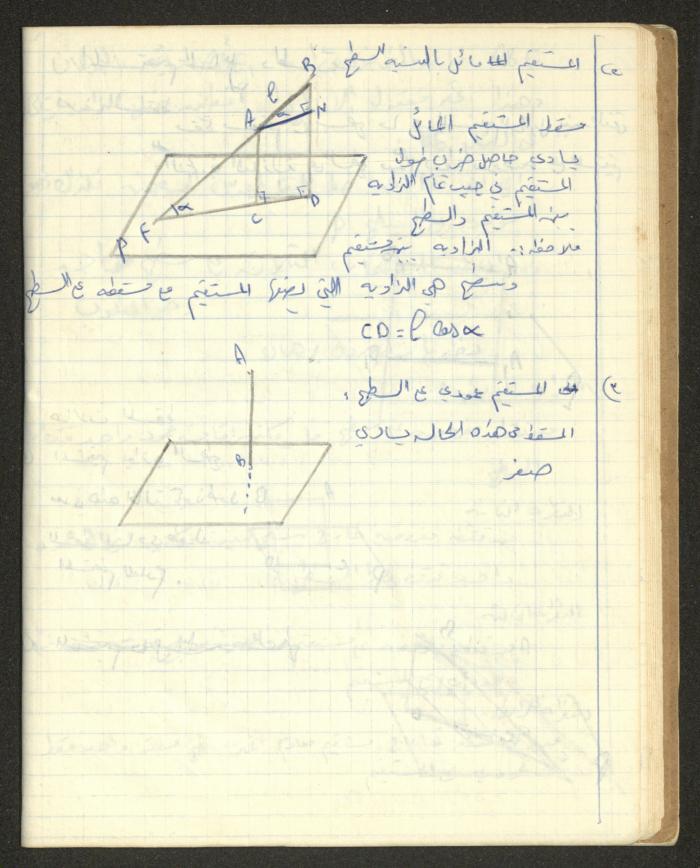 ٢) المستقيم مائل بالنسبة للسطح
مسقط المستقيم المائل
يساوي حاصل ضرب طول
المستقيم في جيب تمام الزاويه
بين المستقيم والسطح
ملاحظه :. الزاويه بين مستقيم
وسطح هي الزاويه التي يصنعها المستقيم مع مسقطه ع السطح
CD = ℓ Cos α
B
ℓ
A
α
N
α
F
C
D
P
٣) المستقيم عمودي ع السطح :
المسقط في هذه الحاله يساوي
صفر
A
B